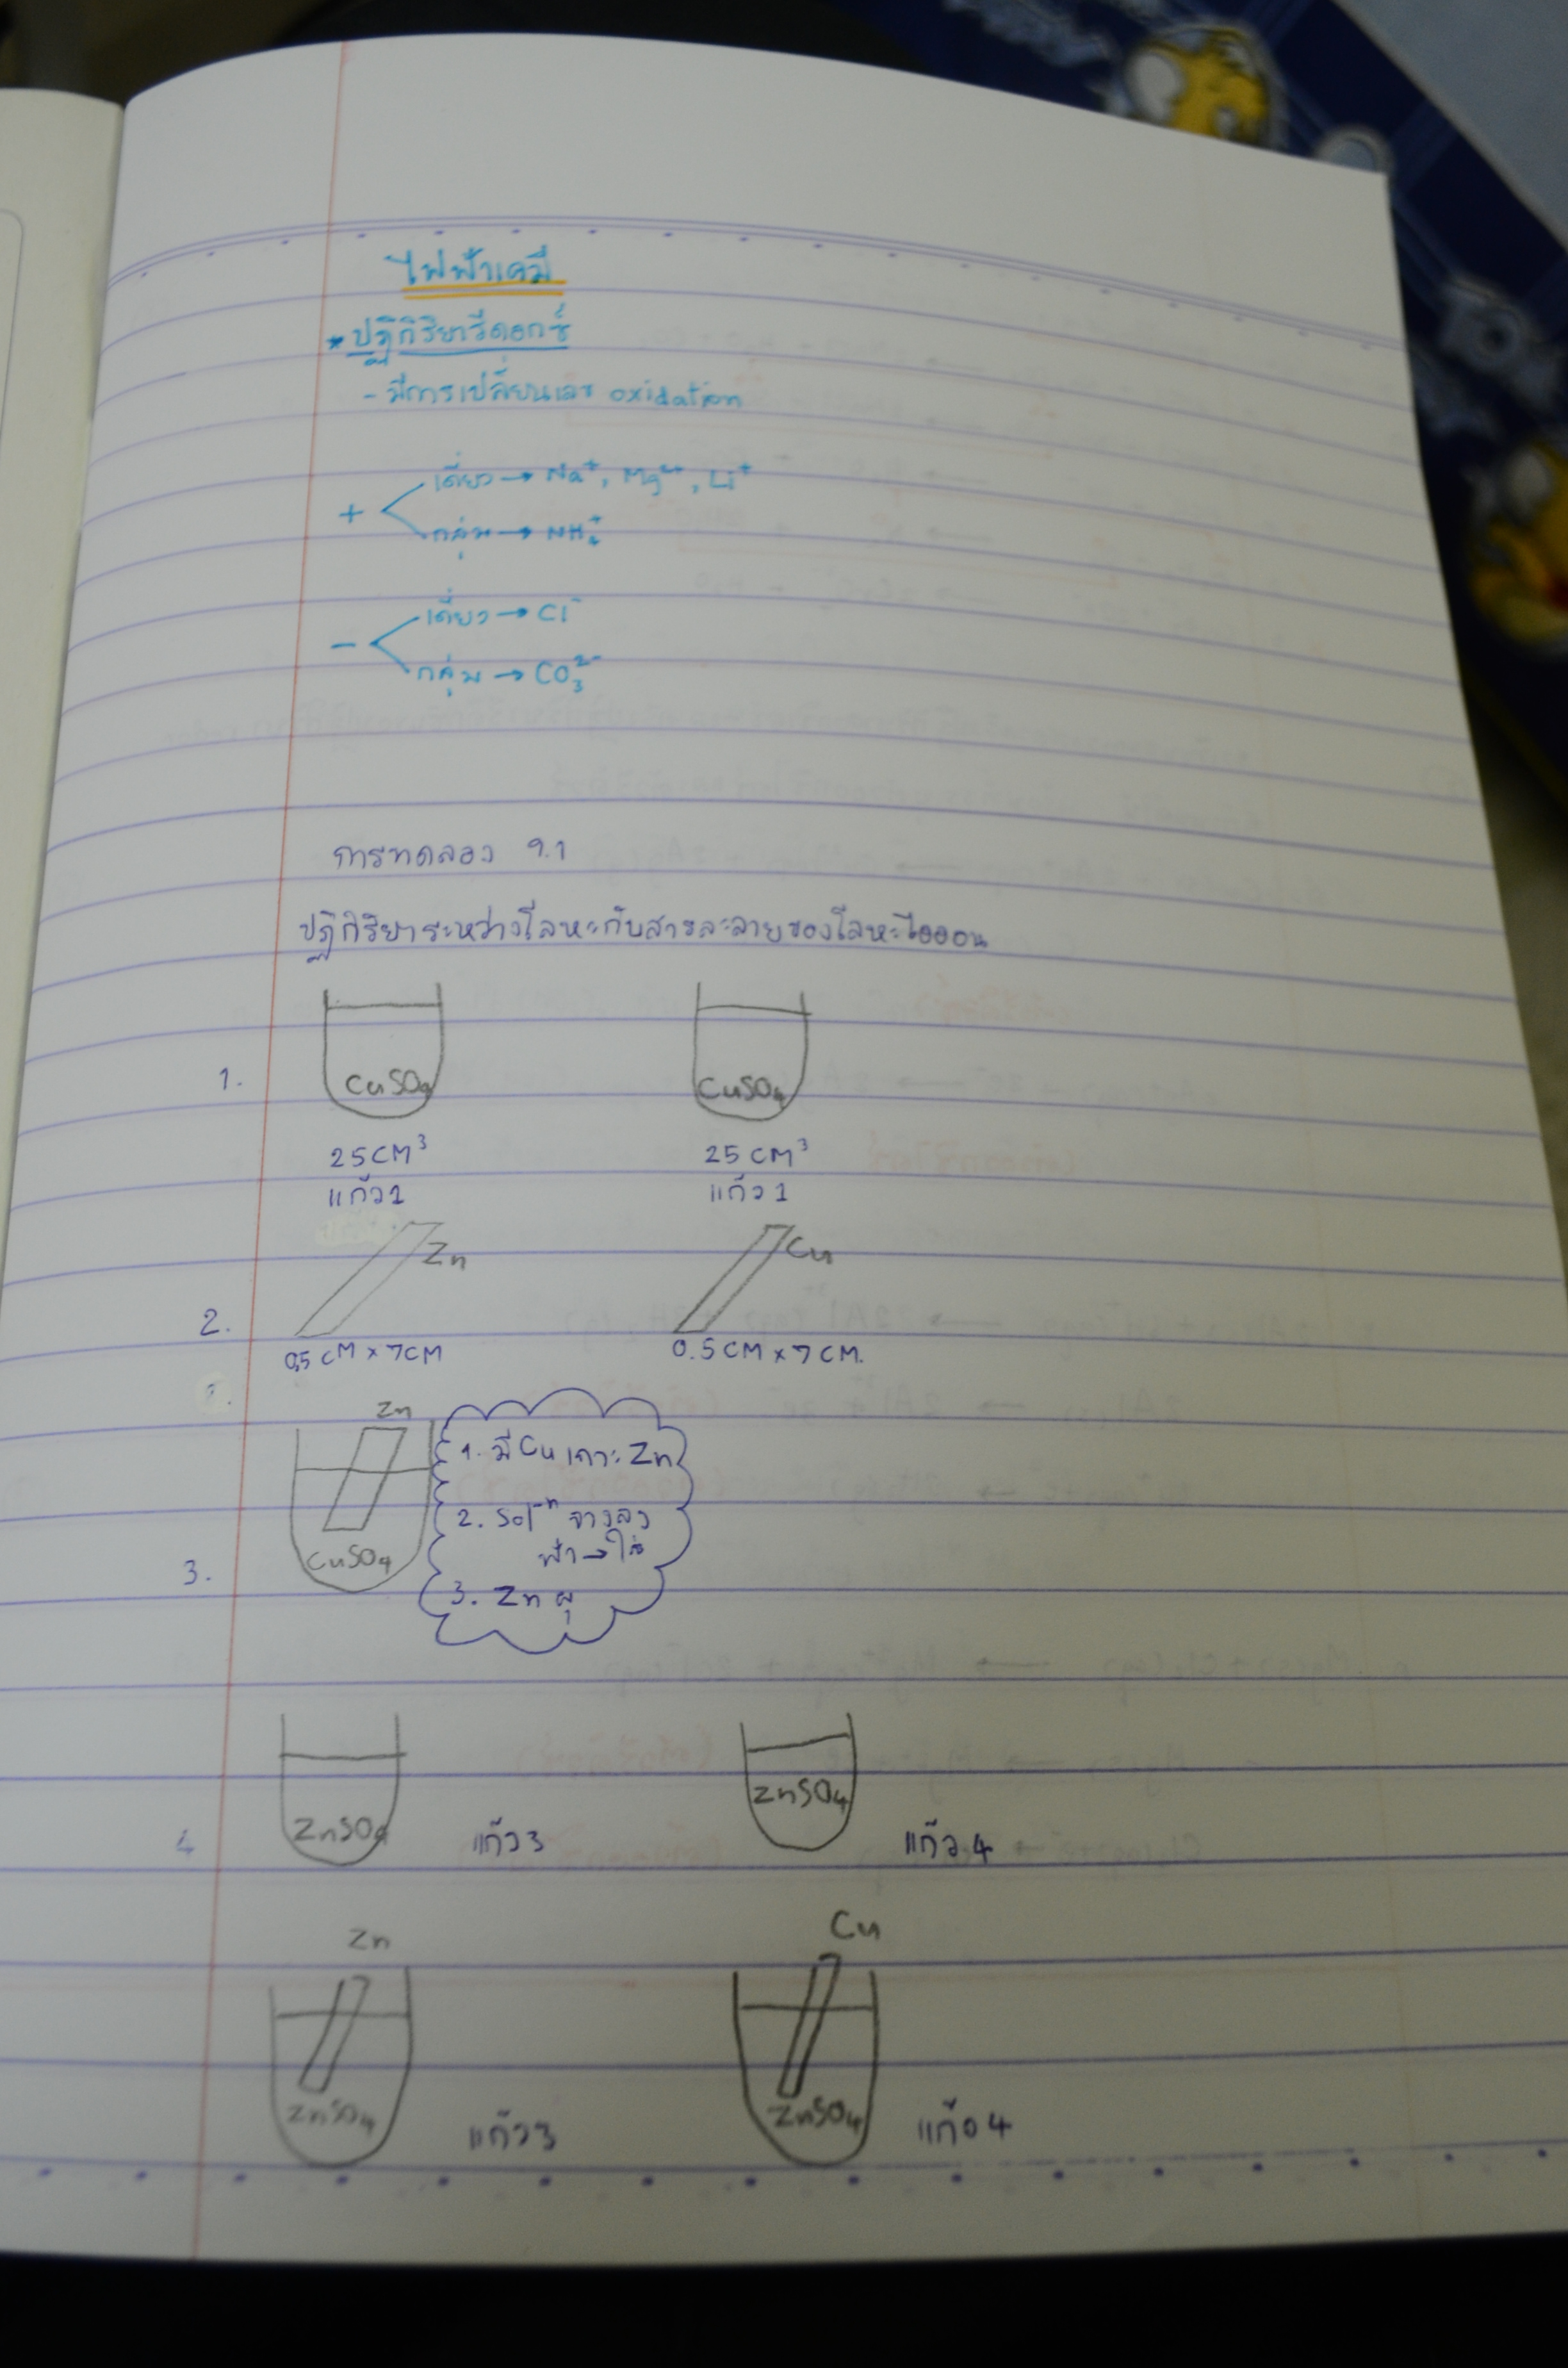 ไฟฟ้าเคมี
* ปฏิกิริยารีดอกซ์
- มีการเปลี่ยนเลข oxidation
เดี่ยว → Na⁺, Mg²⁺, Li⁺
+
กลุ่ม → NH₄⁺
เดี่ยว → Cl⁻
-
กลุ่ม → CO₃²⁻
การทดลอง 9.1
ปฏิกิริยาระหว่างโลหะกับสารละลายของโลหะไอออน
1. CuSO₄ CuSO₄
25 CM³ 25 CM³
แก้ว 1 แก้ว 1
Zn Cu
2.
0.5 CM × 7 CM 0.5 CM × 7 CM.
Zn
1. มี Cu เกาะ Zn
2. Sol⁻ⁿ จางลง
ฟ้า → ใส
3. CuSO₄
3. Zn ผุ
4 ZnSO₄ แก้ว 3 ZnSO₄ แก้ว 4
Zn Cu
ZnSO₄ แก้ว 3 ZnSO₄ แก้ว 4